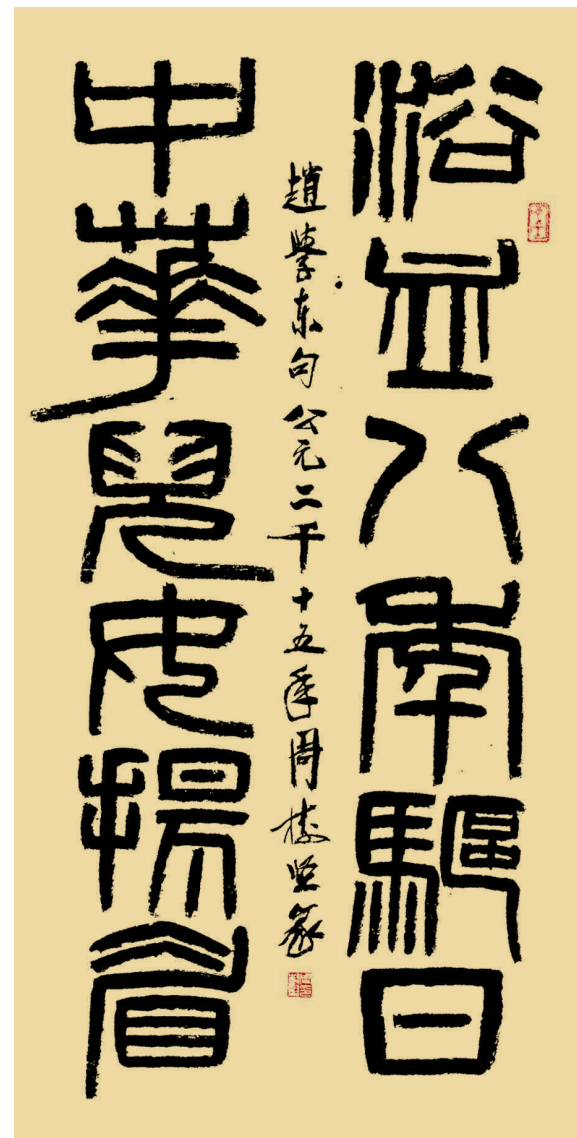 浴血八年驅日
中華兒女揚眉
趙學東句 公元二千十五年周樹堅篆